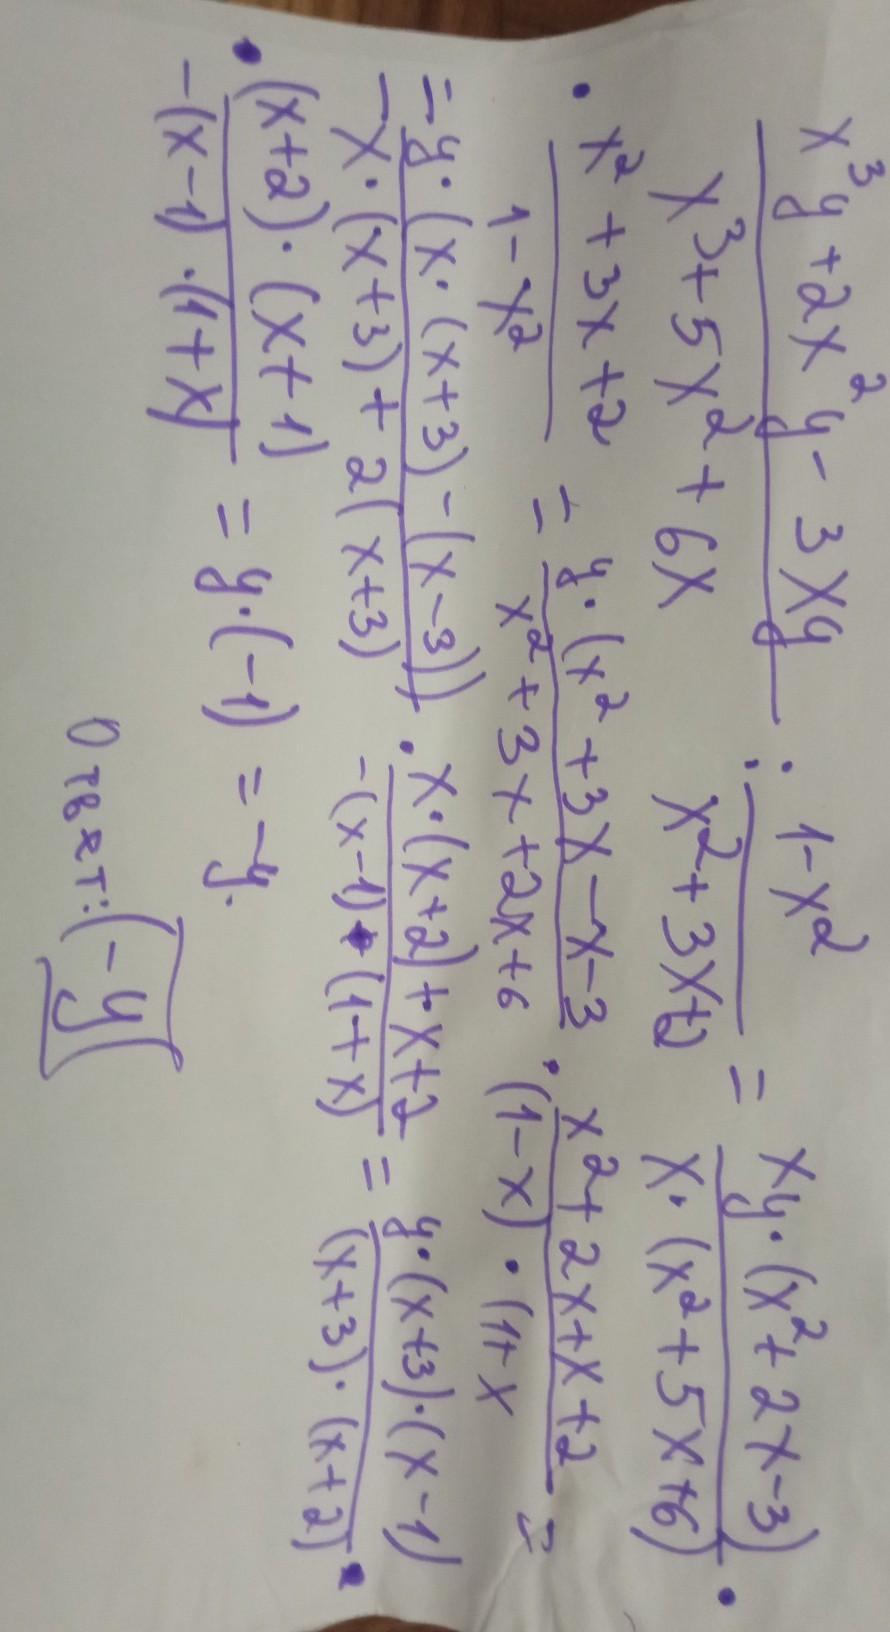 (x³y+2x²y-3xy)/(x³+5x²+6x) : (1-x²)/(x²+3x+2) = (xy·(x²+2x-3))/(x·(x²+5x+6)) ·
· (x²+3x+2)/(1-x²) = (y·(x²+3x-x-3))/(x²+3x+2x+6) · (x²+2x+x+2)/((1-x)·(1+x) =
= (y·(x·(x+3)-(x-3)))/(-x·(x+3)+2(x+3)) · (x·(x+2)+x+2)/(-(x-1)·(1+x)) = (y·(x+3)·(x-1))/((x+3)·(x+2)) ·
· ((x+2)·(x+1))/(-(x-1)·(1+x)) = y·(-1) = -y.
Ответ: (-y)